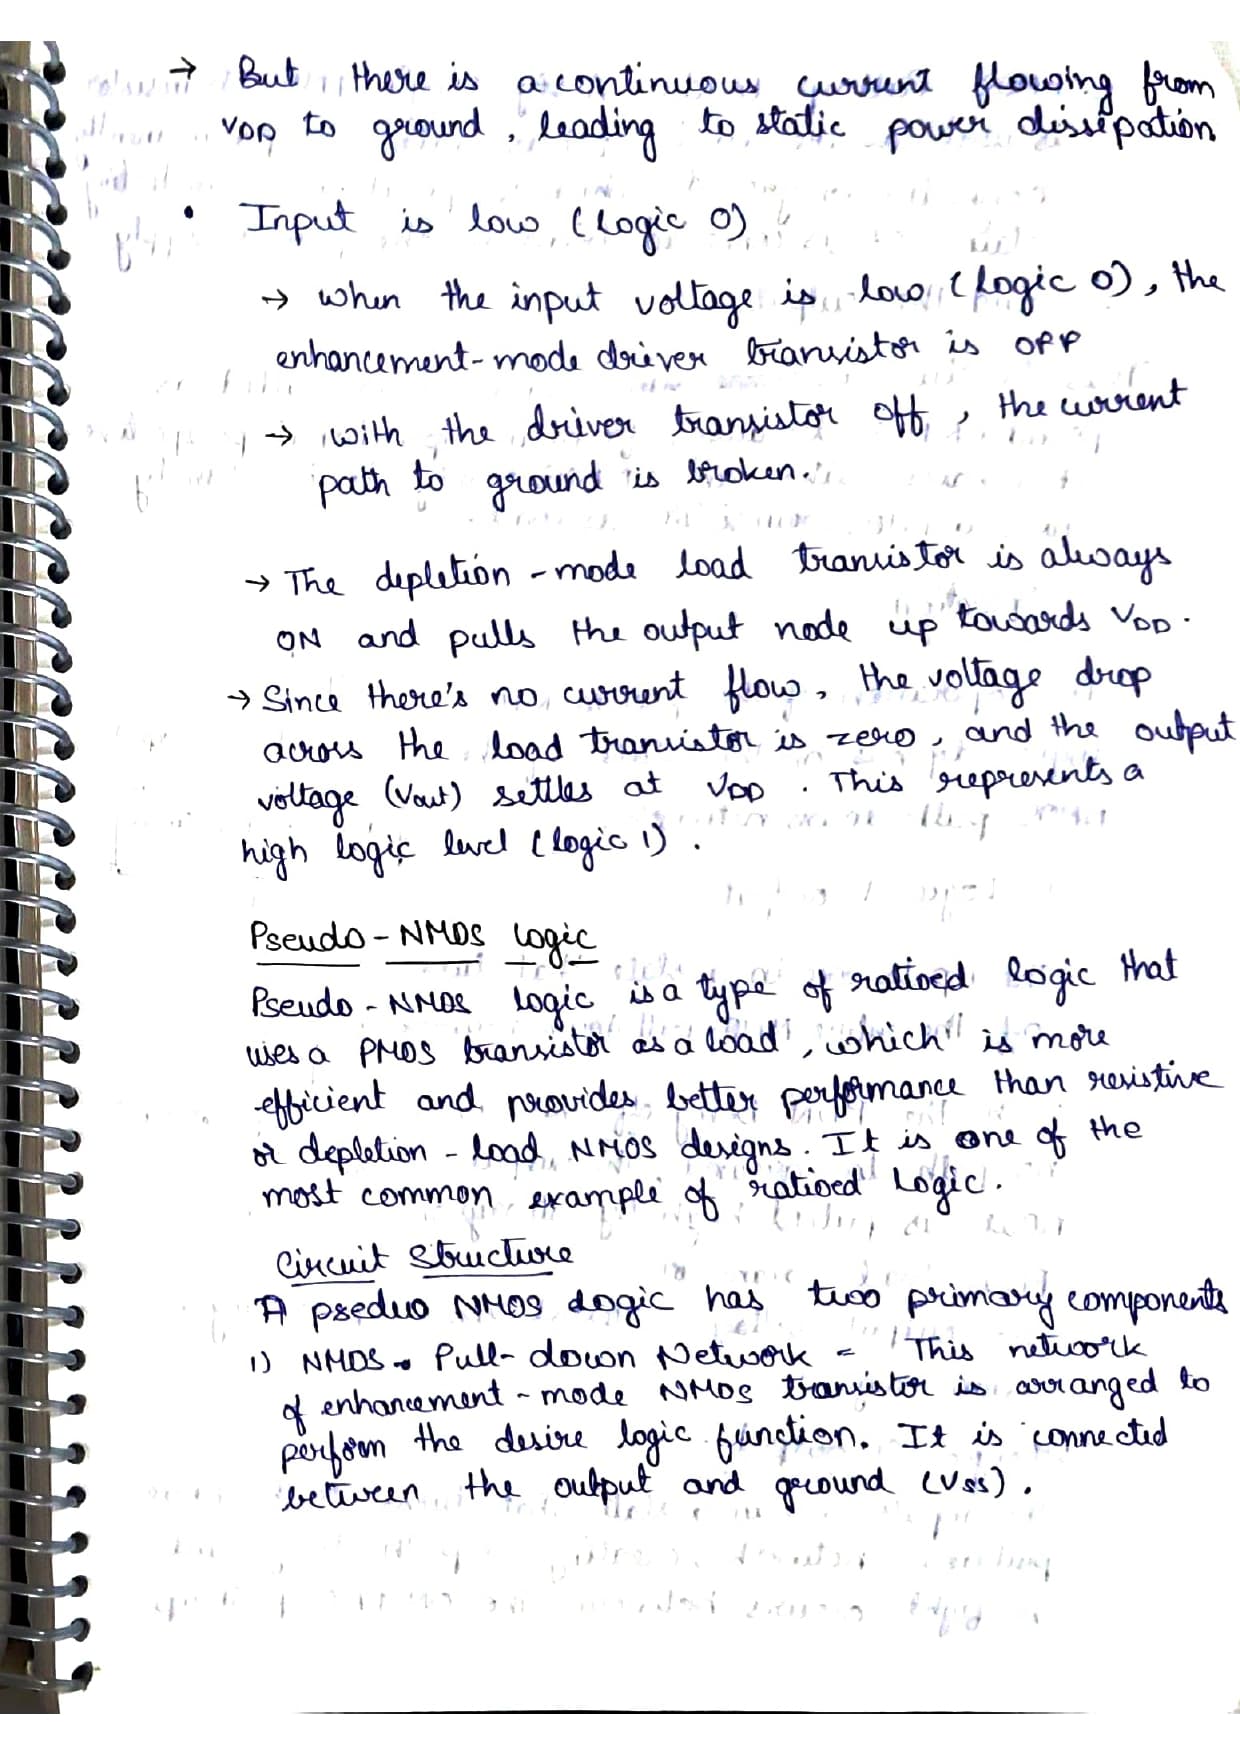 → But there is a continuous current flowing from
VDD to ground, leading to static power dissipation
• Input is low (Logic 0)
→ when the input voltage is low (logic 0), the
enhancement-mode driver transistor is OFF
→ with the driver transistor off, the current
path to ground is broken.
→ The depletion-mode load transistor is always
ON and pulls the output node up towards VDD.
→ Since there's no current flow, the voltage drop
across the load transistor is zero, and the output
voltage (Vout) settles at VDD. This represents a
high logic level (logic 1).
Pseudo-NMOS Logic
Pseudo-NMOS logic is a type of ratioed logic that
uses a PMOS transistor as a load, which is more
efficient and provides better performance than resistive
or depletion-load NMOS designs. It is one of the
most common example of ratioed Logic.
Circuit Structure
A pseduo NMOS Logic has two primary components
1) NMOS Pull-down Network = This network
of enhancement-mode NMOS transistor is arranged to
perform the desire logic function. It is connected
between the output and ground (Vss).